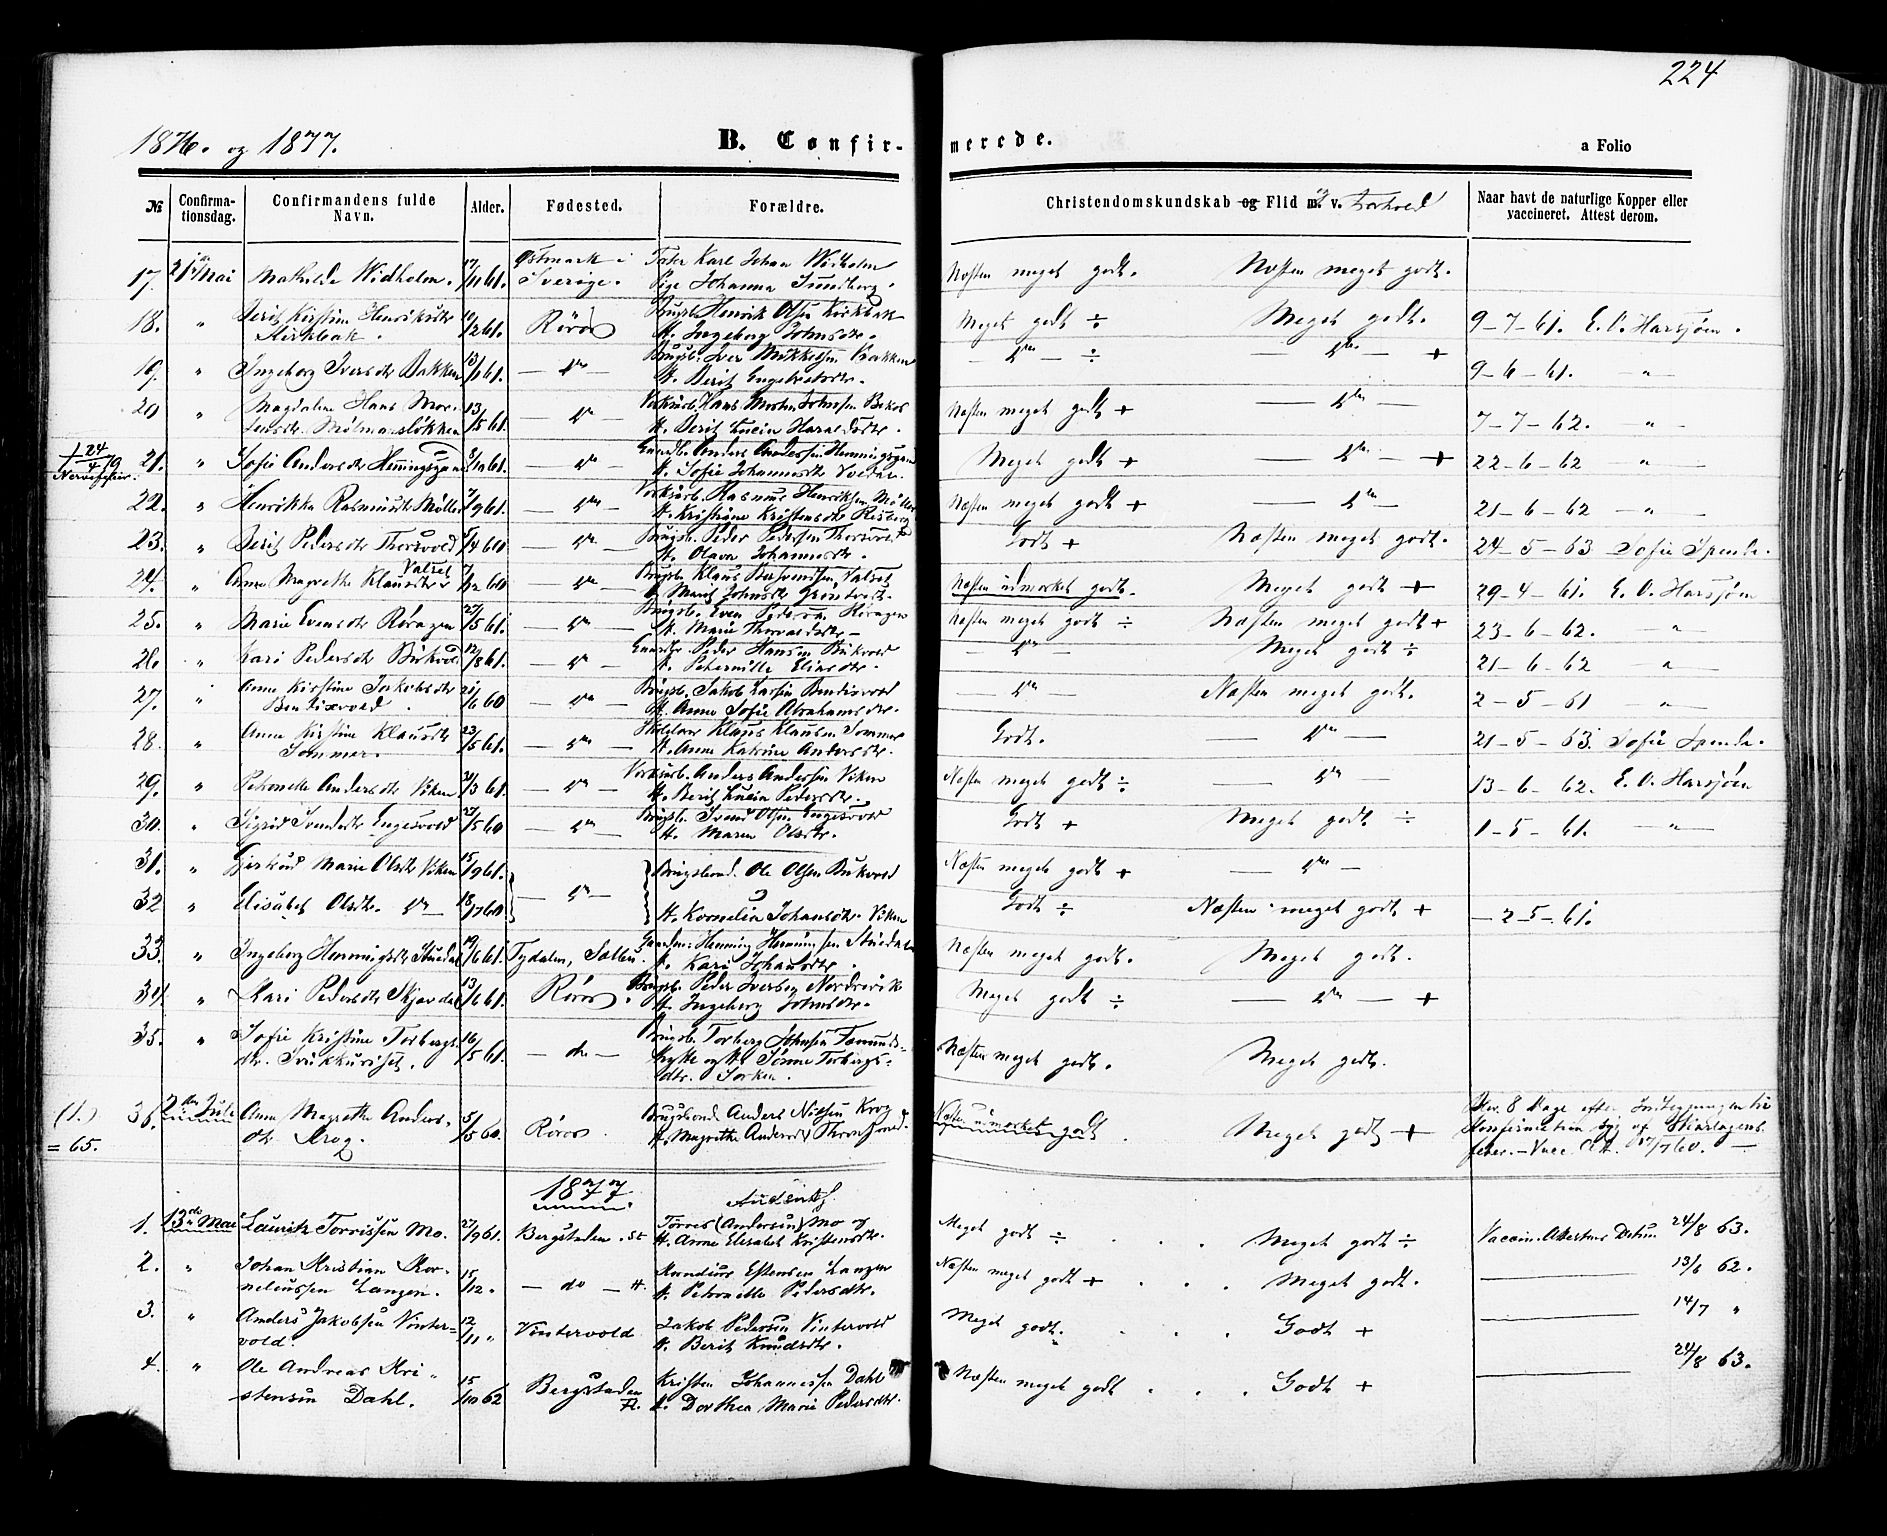 224
1876. og 1877.
B. Confirmerede.
a Folio
№
Confirmationsdag.
Confirmandens fulde Navn.
Alder.
Fødested.
Forældre.
Christendomskundskab og Flid m. v. Forhold
Naar havt de naturlige Kopper eller vaccineret. Attest derom.
17. 21de Mai Mathilde Widholm. 17/11 61. Østmark i Sverige. Fater Karl Johan Widholm Pige Johanna Sundberg. Næsten meget godt. Næsten meget godt.
18. " Berit Kirstine Henriksdtr Kirkbak. 10/2 61. Röros Brugsb. Henrik Olsen Kirkbak H. Ingeborg Johnsdtr. Meget godt ÷ Meget godt. 9-7-61. E. O. Harsjøen.
19. " Ingeborg Iversdtr Bakken 13/1 61. — do — Brugsb. Iver Mikkelsen Bakken H. Berit Engebretsdtr. — do — ÷ — do — + 9-6-61. — " —
20 " Magdalene Hans Mortensdtr. Mølmansløkken 13/5 61. — do Hans Morten Johnsen H. Berit Lucia Haraldsdtr. Næsten meget godt + — do — 7-7-62. — " —
+ 24/4 79 Nervefeber.
21. " Sofie Andersdtr Henningsgaard 3/10 61. — do — Gaardb. Anders Andersen Henningsgaard H. Sofie Johannesdtr Meget godt + — do — + 22-6-62 — " —
22. " Henrikka Rasmusdtr Möller 7/9 61. — do — Værksarb. Rasmus Henriksen Möller H. Kristiane Kristensdtr Risberg Næsten meget godt + — do — 21-6-62 — " —
23. " Berit Pedersdtr Thorsvold /4 60 — do — Brugsb. Peder Pedersen Thorsvold H. Olava Johannesdtr. Godt + Næsten meget godt. 24-5-63 Sofie Spende.
24. " Anne Magrethe Klausdtr Valset 7/12 60 — do — Brugsb. Klaus Valset H. Marit Johnsdtr Grøntvedt. Næsten udmerket godt. Meget godt + 29-4-61. E. O. Harsjöen
25. " Marie Evensdtr Røragen 27/5 61. — do — Brugsb. Even Pedersen Røragen H. Marie Thorvaldsdtr — Næsten meget godt ÷ Næsten meget godt + 23-6-62. — " —
26. " Kari Pedersdtr Bukvold 12/8 61. — do — Gaardbr. Peder Hansen Bukvold H. Peternille Eliasdtr. — do — Meget godt ÷ 21-6-62 "
27. " Anne Kirstine Jakobsdtr Bendixvold. 21/6 60 — do — Brugsb. Jakob Larsen Bendixvold H. Anne Sofie Abrahamsdtr. — do — Næsten meget godt. 2-5-61 "
28. " Anne Kirstine Klausdtr Sommer. 23/5 61. — do — Klaus Klausen Sommer H. Anne Katrine Andersdtr. Godt. — do — 21-5-63. Sofie Spende.
29. " Petronelle Andersdtr Viken 21/3 61. — do — Værksarb. Anders Andersen Viken H. Berit Lucia Pedersdtr. Næsten meget godt ÷ — do — 13-6-62. E. O. Harsjøen
30. " Sigrid Svendsdtr Engesvold 27/5 60 — do — Brugsb. Svend Olsen Engesvold H. Maren Olsdtr. Godt + Meget godt. ÷ 1-5-61. — " —
31. " Gjertrud Marie Olsdtr Viken 15/9 61. — do — Brugsbond. Ole Olsen Bukvold Næsten meget godt + — do —
32 " Elisabet Olsdtr. do — 18/7 60 H. Kornelia Johansdtr. Viken Godt ÷ Næsten meget godt + — 2-5-61.
33. " Ingeborg Henningsdtr Stuedal 19/6 61. Tydalen, Selbu. Gaardm. Henning Henningsen Stuedalen H. Kari Johansdtr. Næsten meget godt. Meget godt.
34. " Kari Pedersdtr Skjævdal 13/6 61. Röros. Brugsb. Peder Iversen Nordvik H. Ingeborg Johnsdtr. Meget godt ÷ — do — +
35. " Sofie Kristine Torbergsdtr. Svukkuriset. 16/5 61. — do — Brugsb. Torberg Johnsen Fæmundshytte og H. Sönne Torbergsdtr. Sorken. Næsten meget godt. Meget godt.
(1.) = 65.
36. 2den Juli Anne Magrethe Andersdtr. Krog. 5/5 60. Röros. Brugsbond Anders Nilsen Krog H. Magrethe Andersdtr Næsten udmerket godt. Meget godt + Blev 8 Dage efter til Konfirmation syg af Skarlagensfeber. — Vacc. Att. 17/7 60. —
1877
1. 13de Mai Lauritz Torrissen Mo. 27/9 61. Bergstaden. St Torres (Andersen) Mo og H. Anne Elisabet Kristensdtr. Meget godt ÷ . . . Meget godt ÷ Vaccin. Attestens Datum 24/8 63.
2. " Johan Kristian Korneliussen Langen. 15/12. — do — H. Kornelius Estensen Langen H. Petronelle Pedersdtr. Næsten meget godt + . . Meget godt. ——— 13/6 62.
3. " Anders Jakobsen Vintervold. 12/11 " Vintervold. Jakob Pedersen Vintervold H. Berit Knudsdtr. Meget godt. . . . Godt + ——— 14/7 "
4. " Ole Andreas Kristensen Dahl. 15/10 62 Bergstaden Fl. Kristen Johannessen Dahl H. Dorthea Marie Pedersdtr. Næsten meget godt . . . Godt + ——— 24/8 63.